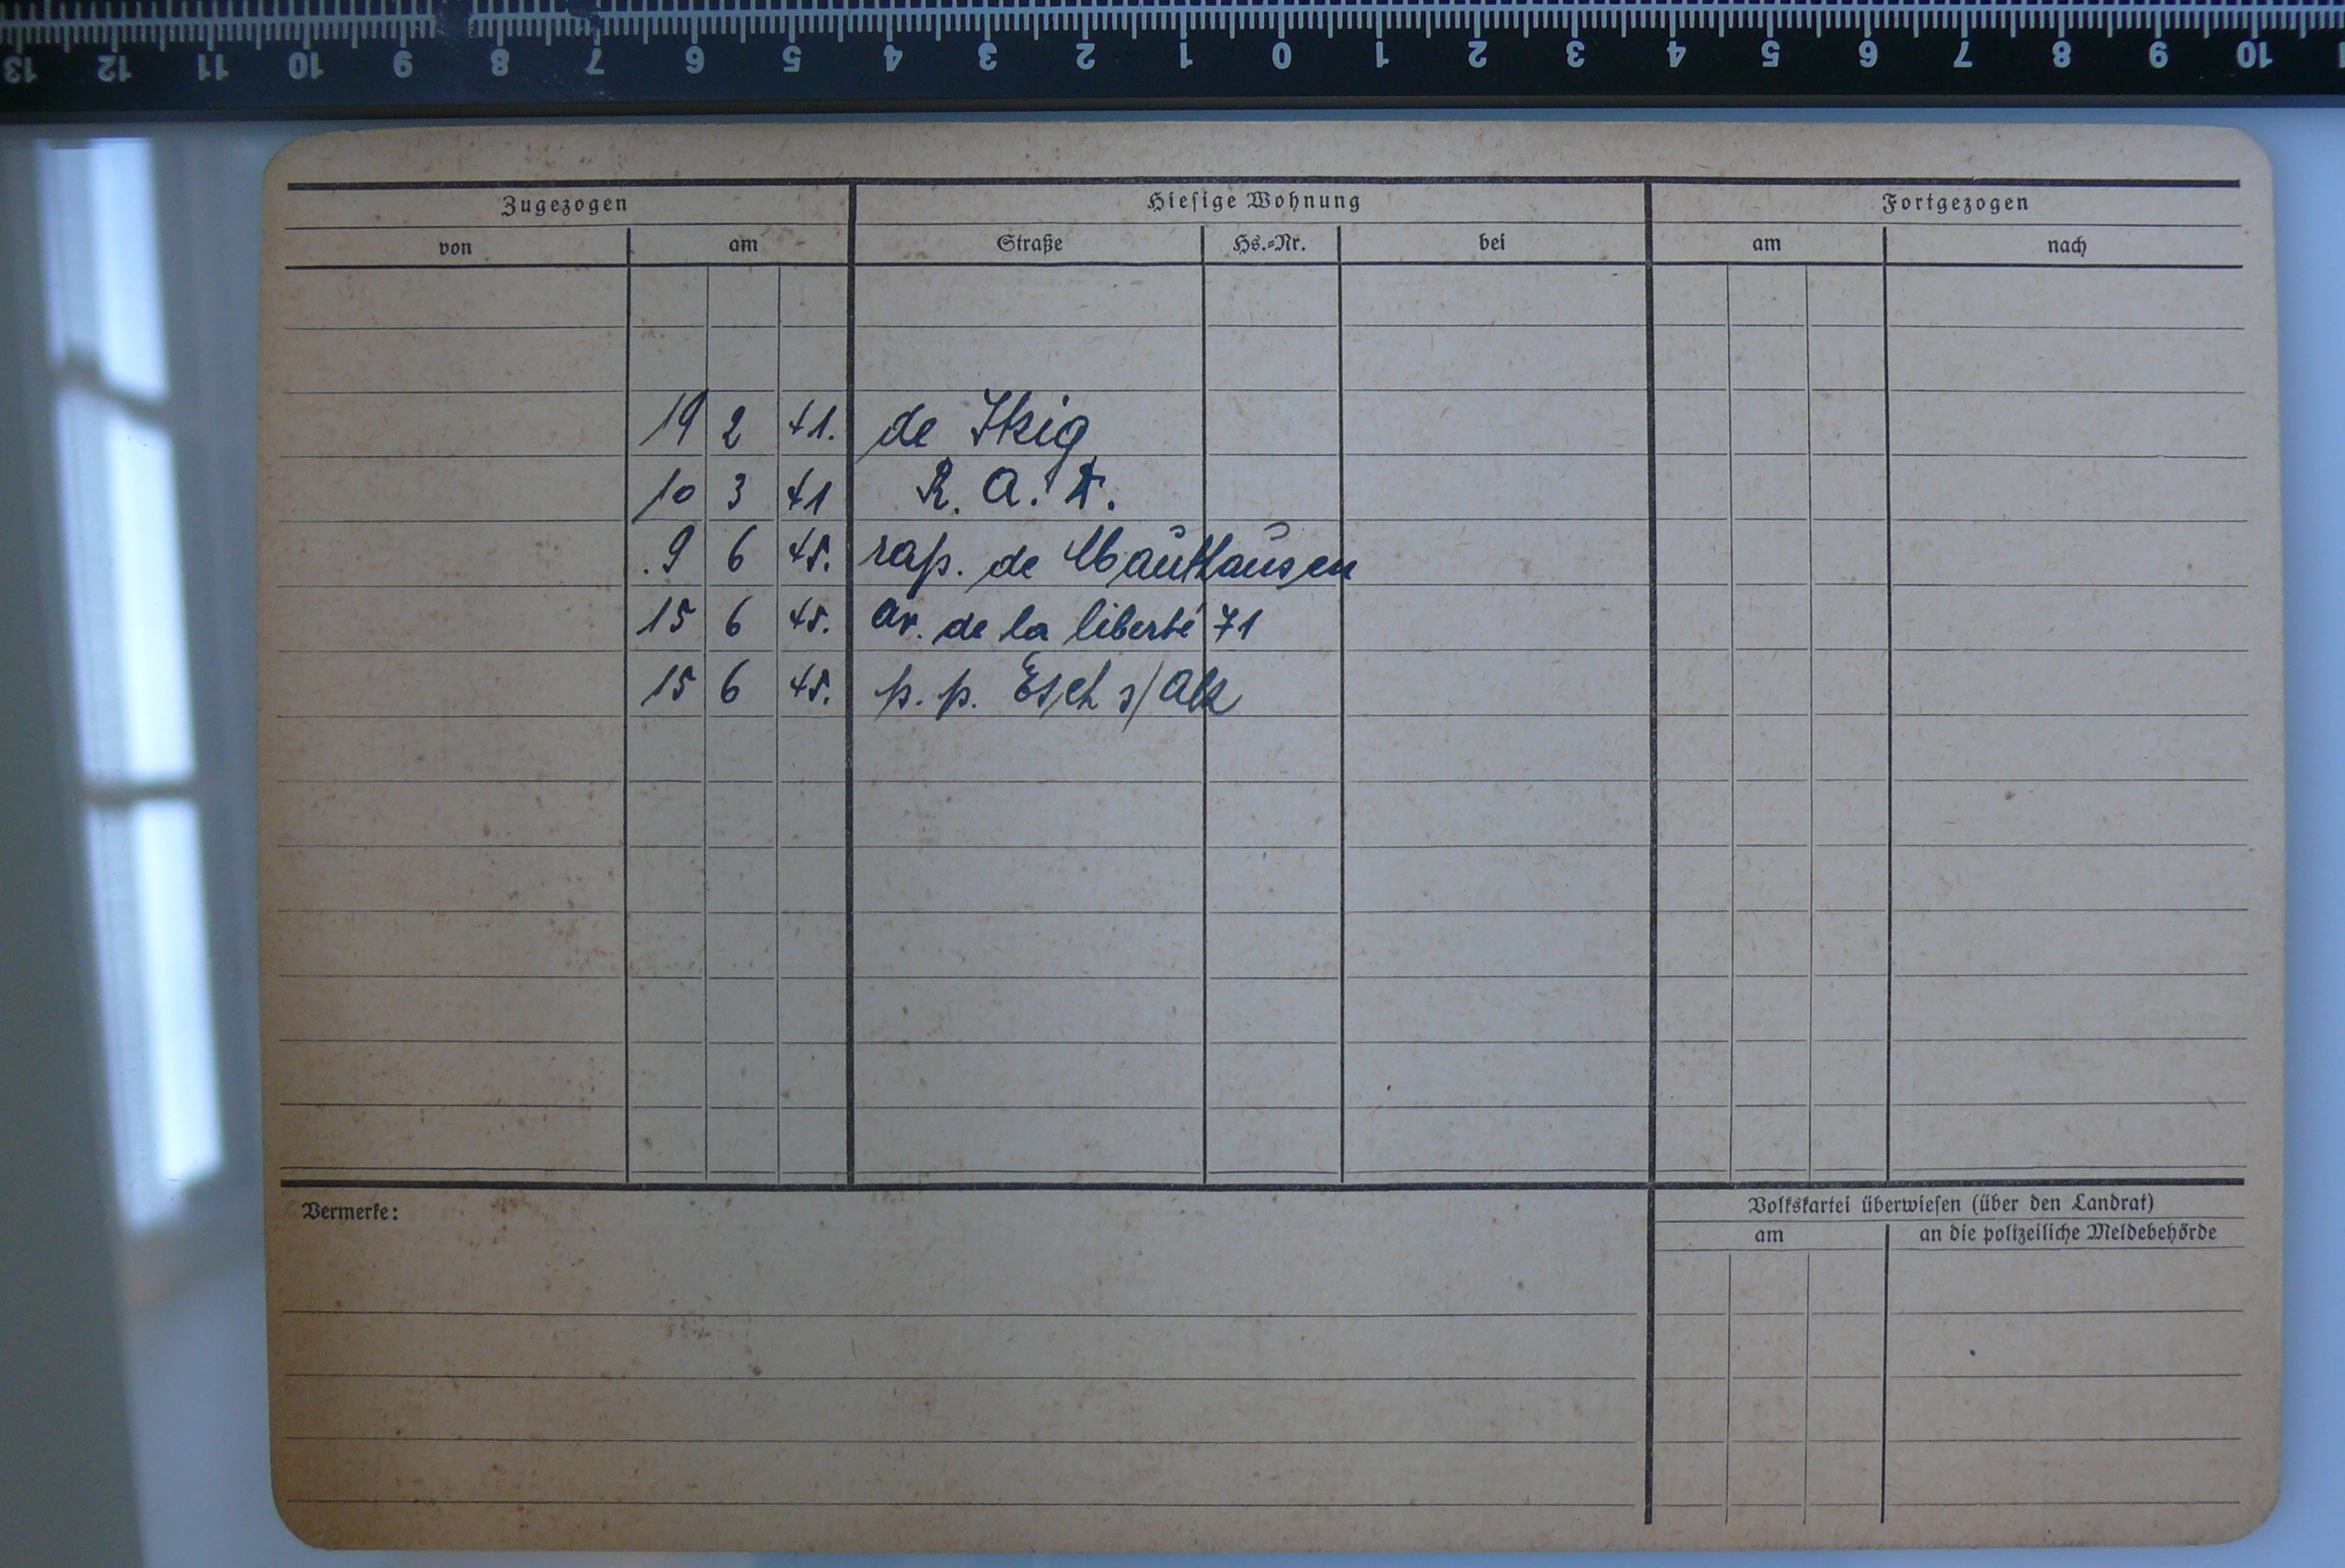 13 12 11 10 9 8 7 6 5 4 3 2 1 0 1 2 3 4 5 6 7 8 9 10
Zugezogen Hiesige Wohnung Fortgezogen
von am Straße Hs.=Nr. bei am nach
19 2 41. de
10 3 41 R. A.
.9 6 45. rap. de Mauthausen
15 6 45. av. de la liberté 71
15 6 45. p. p. Esch s/Alz
Vermerke: Volkskartei überwiesen (über den Landrat)
am an die polizeiliche Meldebehörde